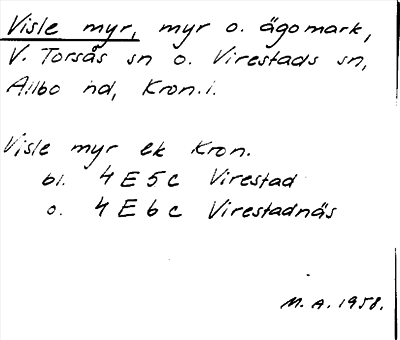 Visle myr, myr o. ägomark,
V. Torsås sn o. Virestads sn,
Allbo hd, Kron.l.
Visle myr ek Kron.
bl. 4 E 5 c Virestad
o. 4 E 6 c Virestadnäs
M. A. 1958.